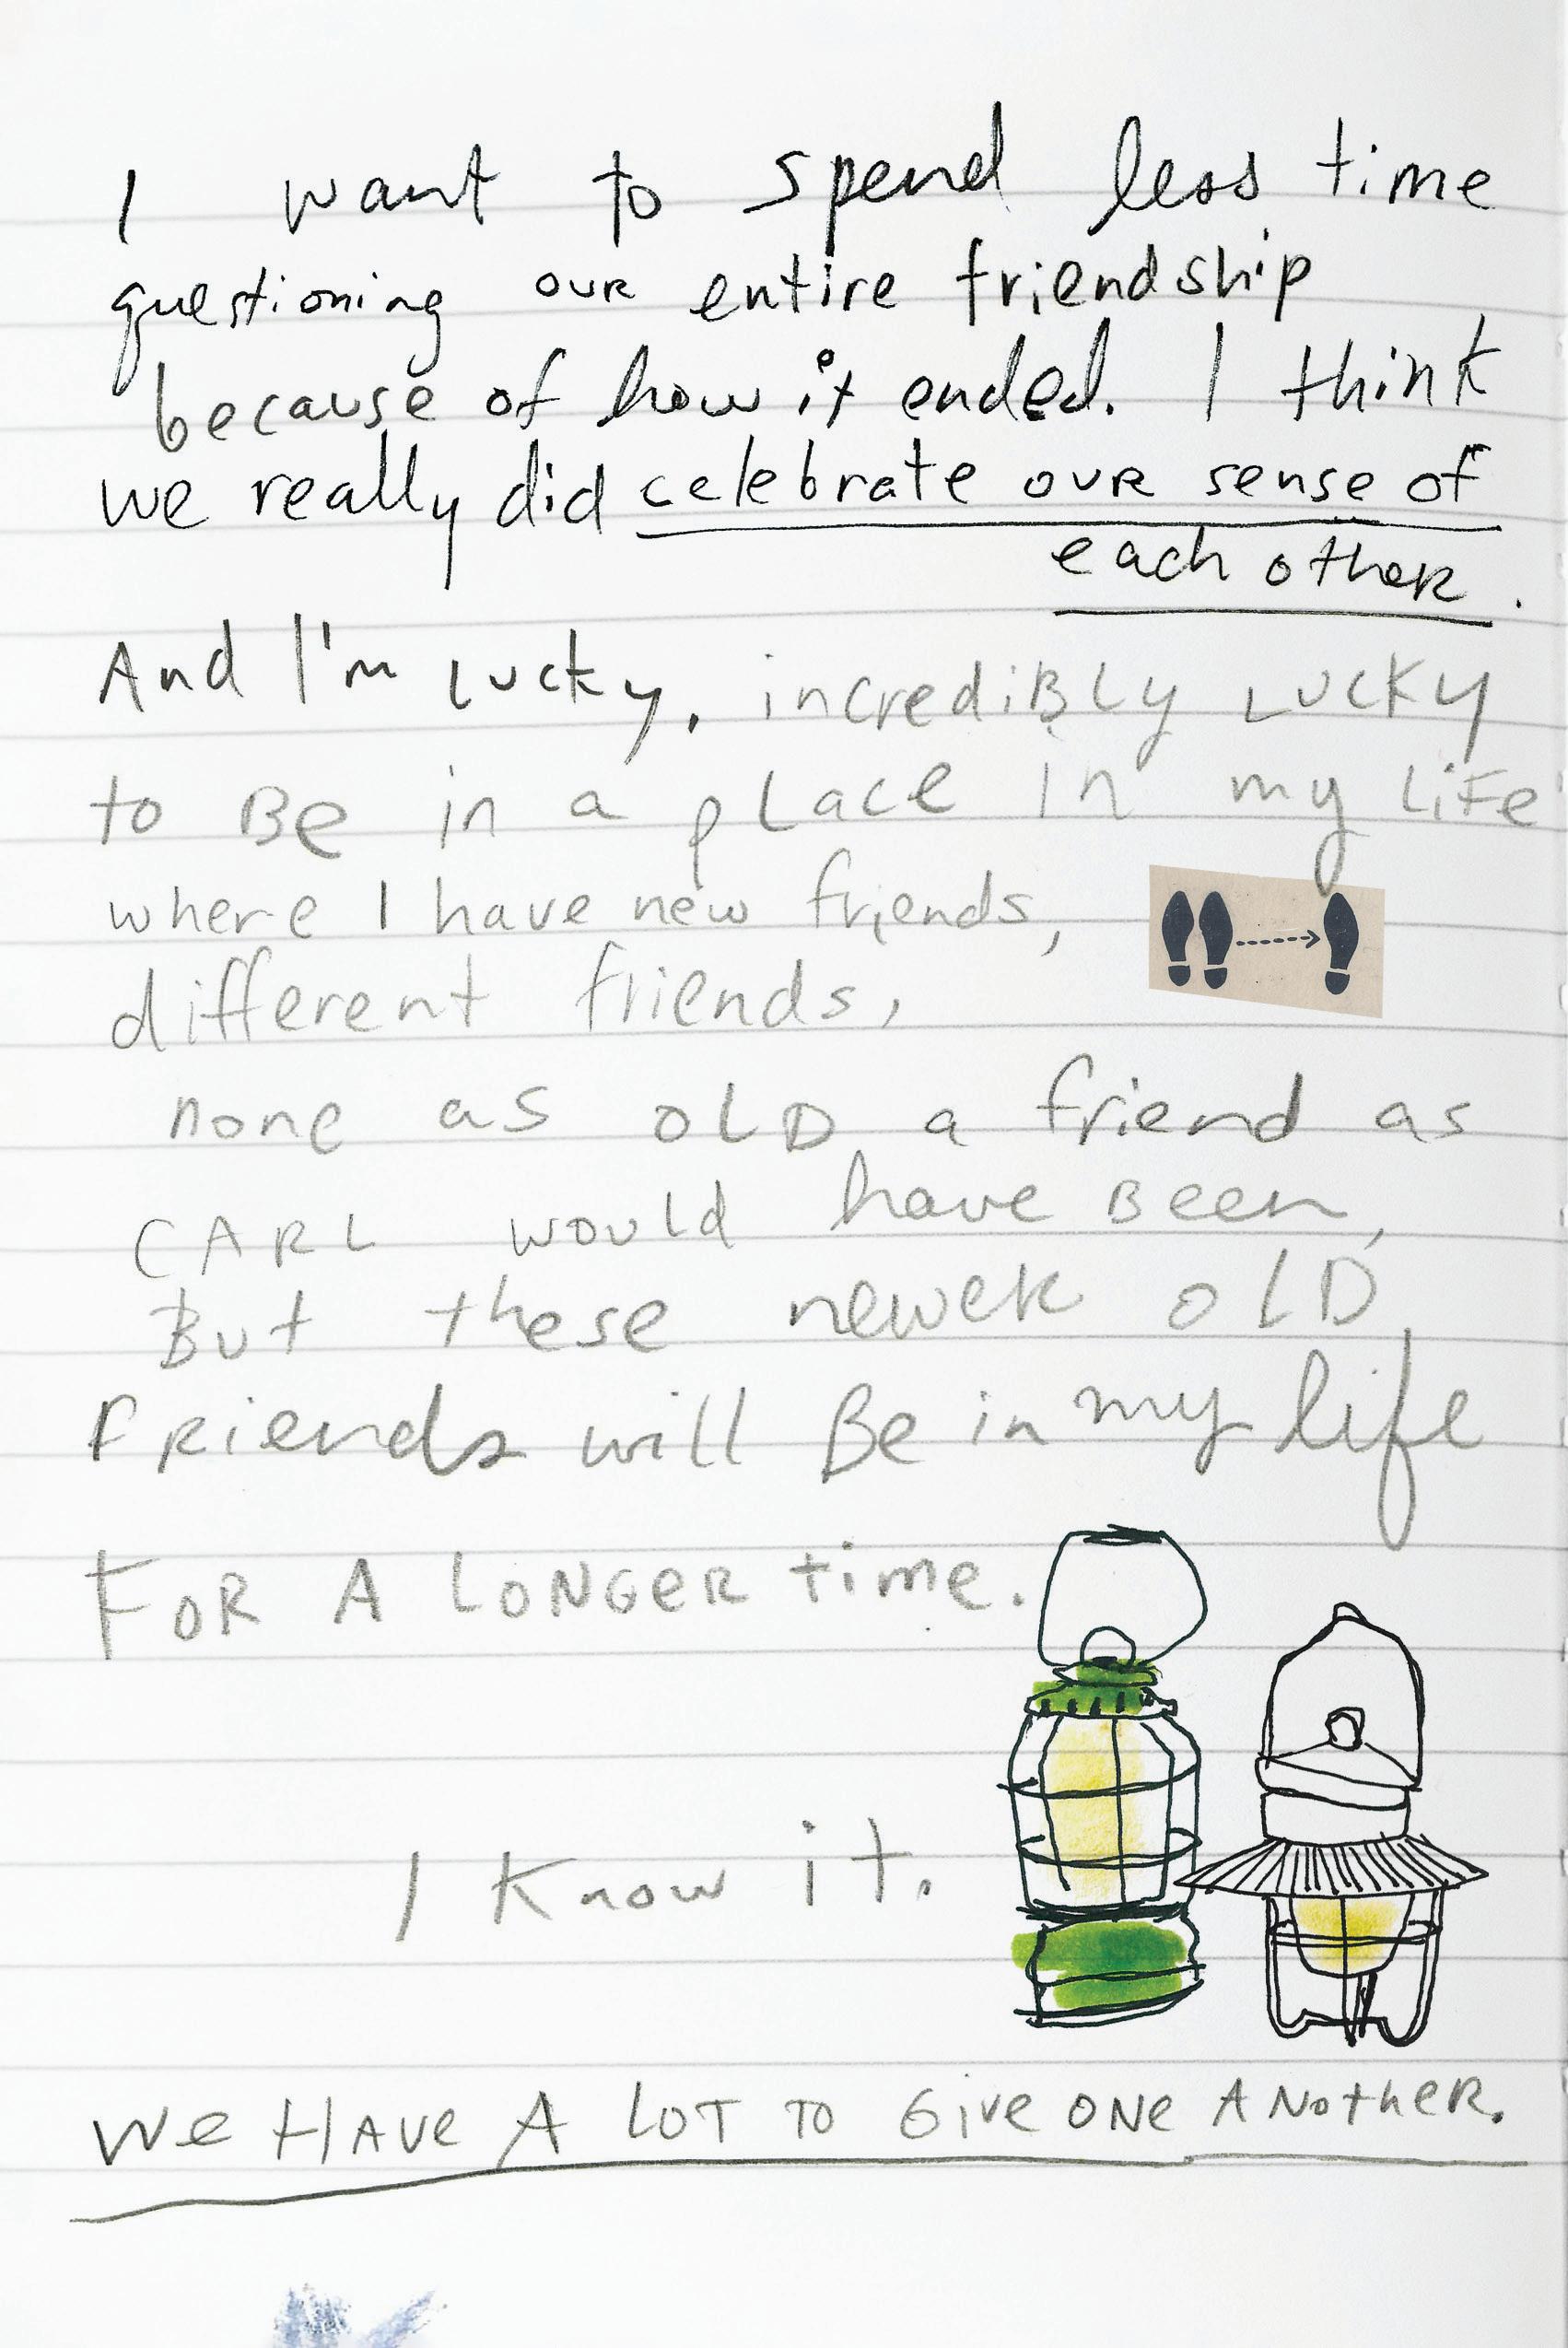 I want to spend less time
questioning our entire friendship
because of how it ended. I think
we really did celebrate our sense of
each other.
And I'm lucky, incrediBLy Lucky
to Be in a pLace in my LiFe
where I have new friends,
different friends,
none as OLD a friend as
CARL would have Been,
But these newer OLD
Friends will Be in my life
FOR A LONGER time.
I Know it.
We HAVe A LOT TO Give ONe ANotheR.